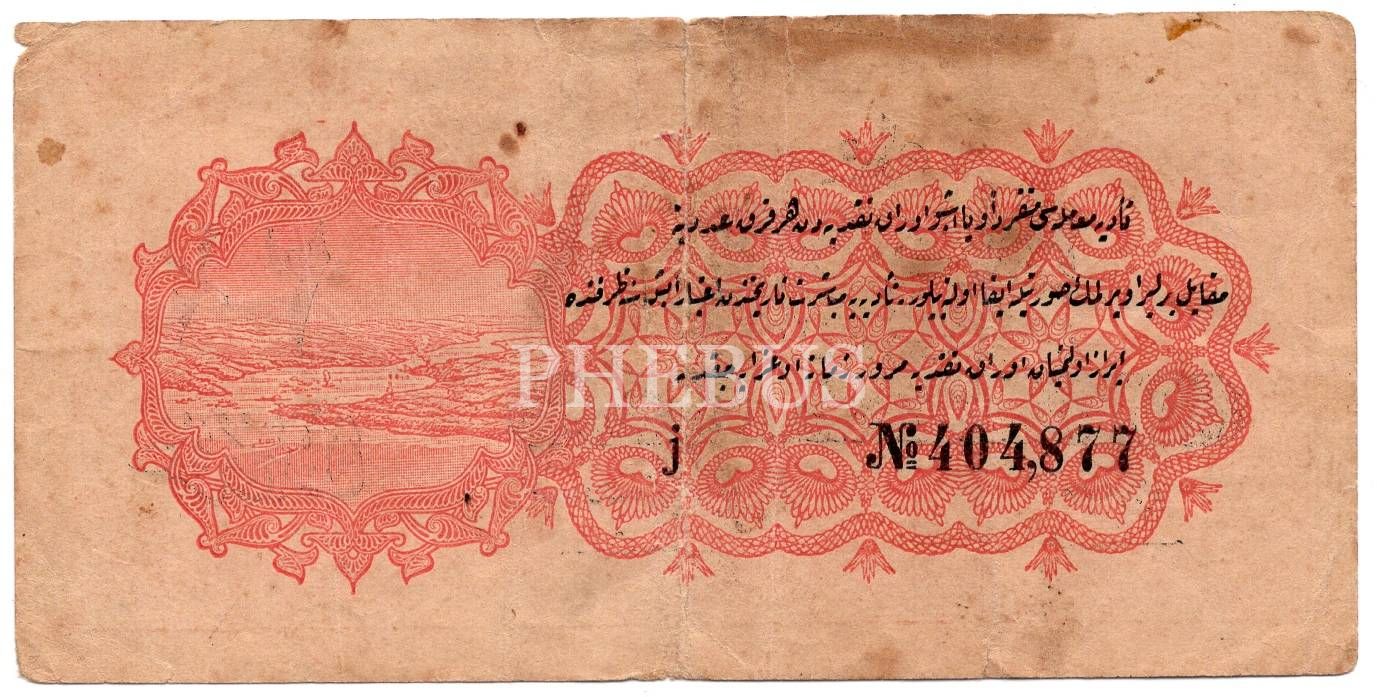 تأدیه معامله‌سی منفرداً ویا اشبو اوراق نقدیه‌دن هر قرق عددینه
مقابل بر لیرا ویرلمك صورتیله ایفا اولنه بیلور. تأدیه‌یه مباشرت تاریخندن اعتباراً بش سنه ظرفنده
ابراز اولنمیان اوراق نقدیه مرور زمانه اوغرایه جقدر
PHEBUS
j № 404,877